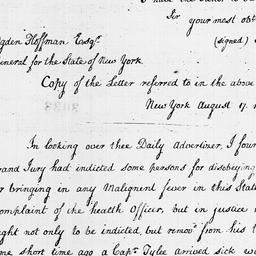 Sir
your most obt
gden Hoffman Esqr.
(signed)
eneral for the State of New York.
Copy of the Letter referred to in the above
New York August 17.
In looking over thee Daily Advertiser, I four
rand Jury had indicted some persons for disobeying
r bringing in any Malignent fever in this Stat
omplaint of the health Officer, but in justice
ght not only to be indicted, but remov'd from his
me short time ago a Capt. Tylee arrived sick w